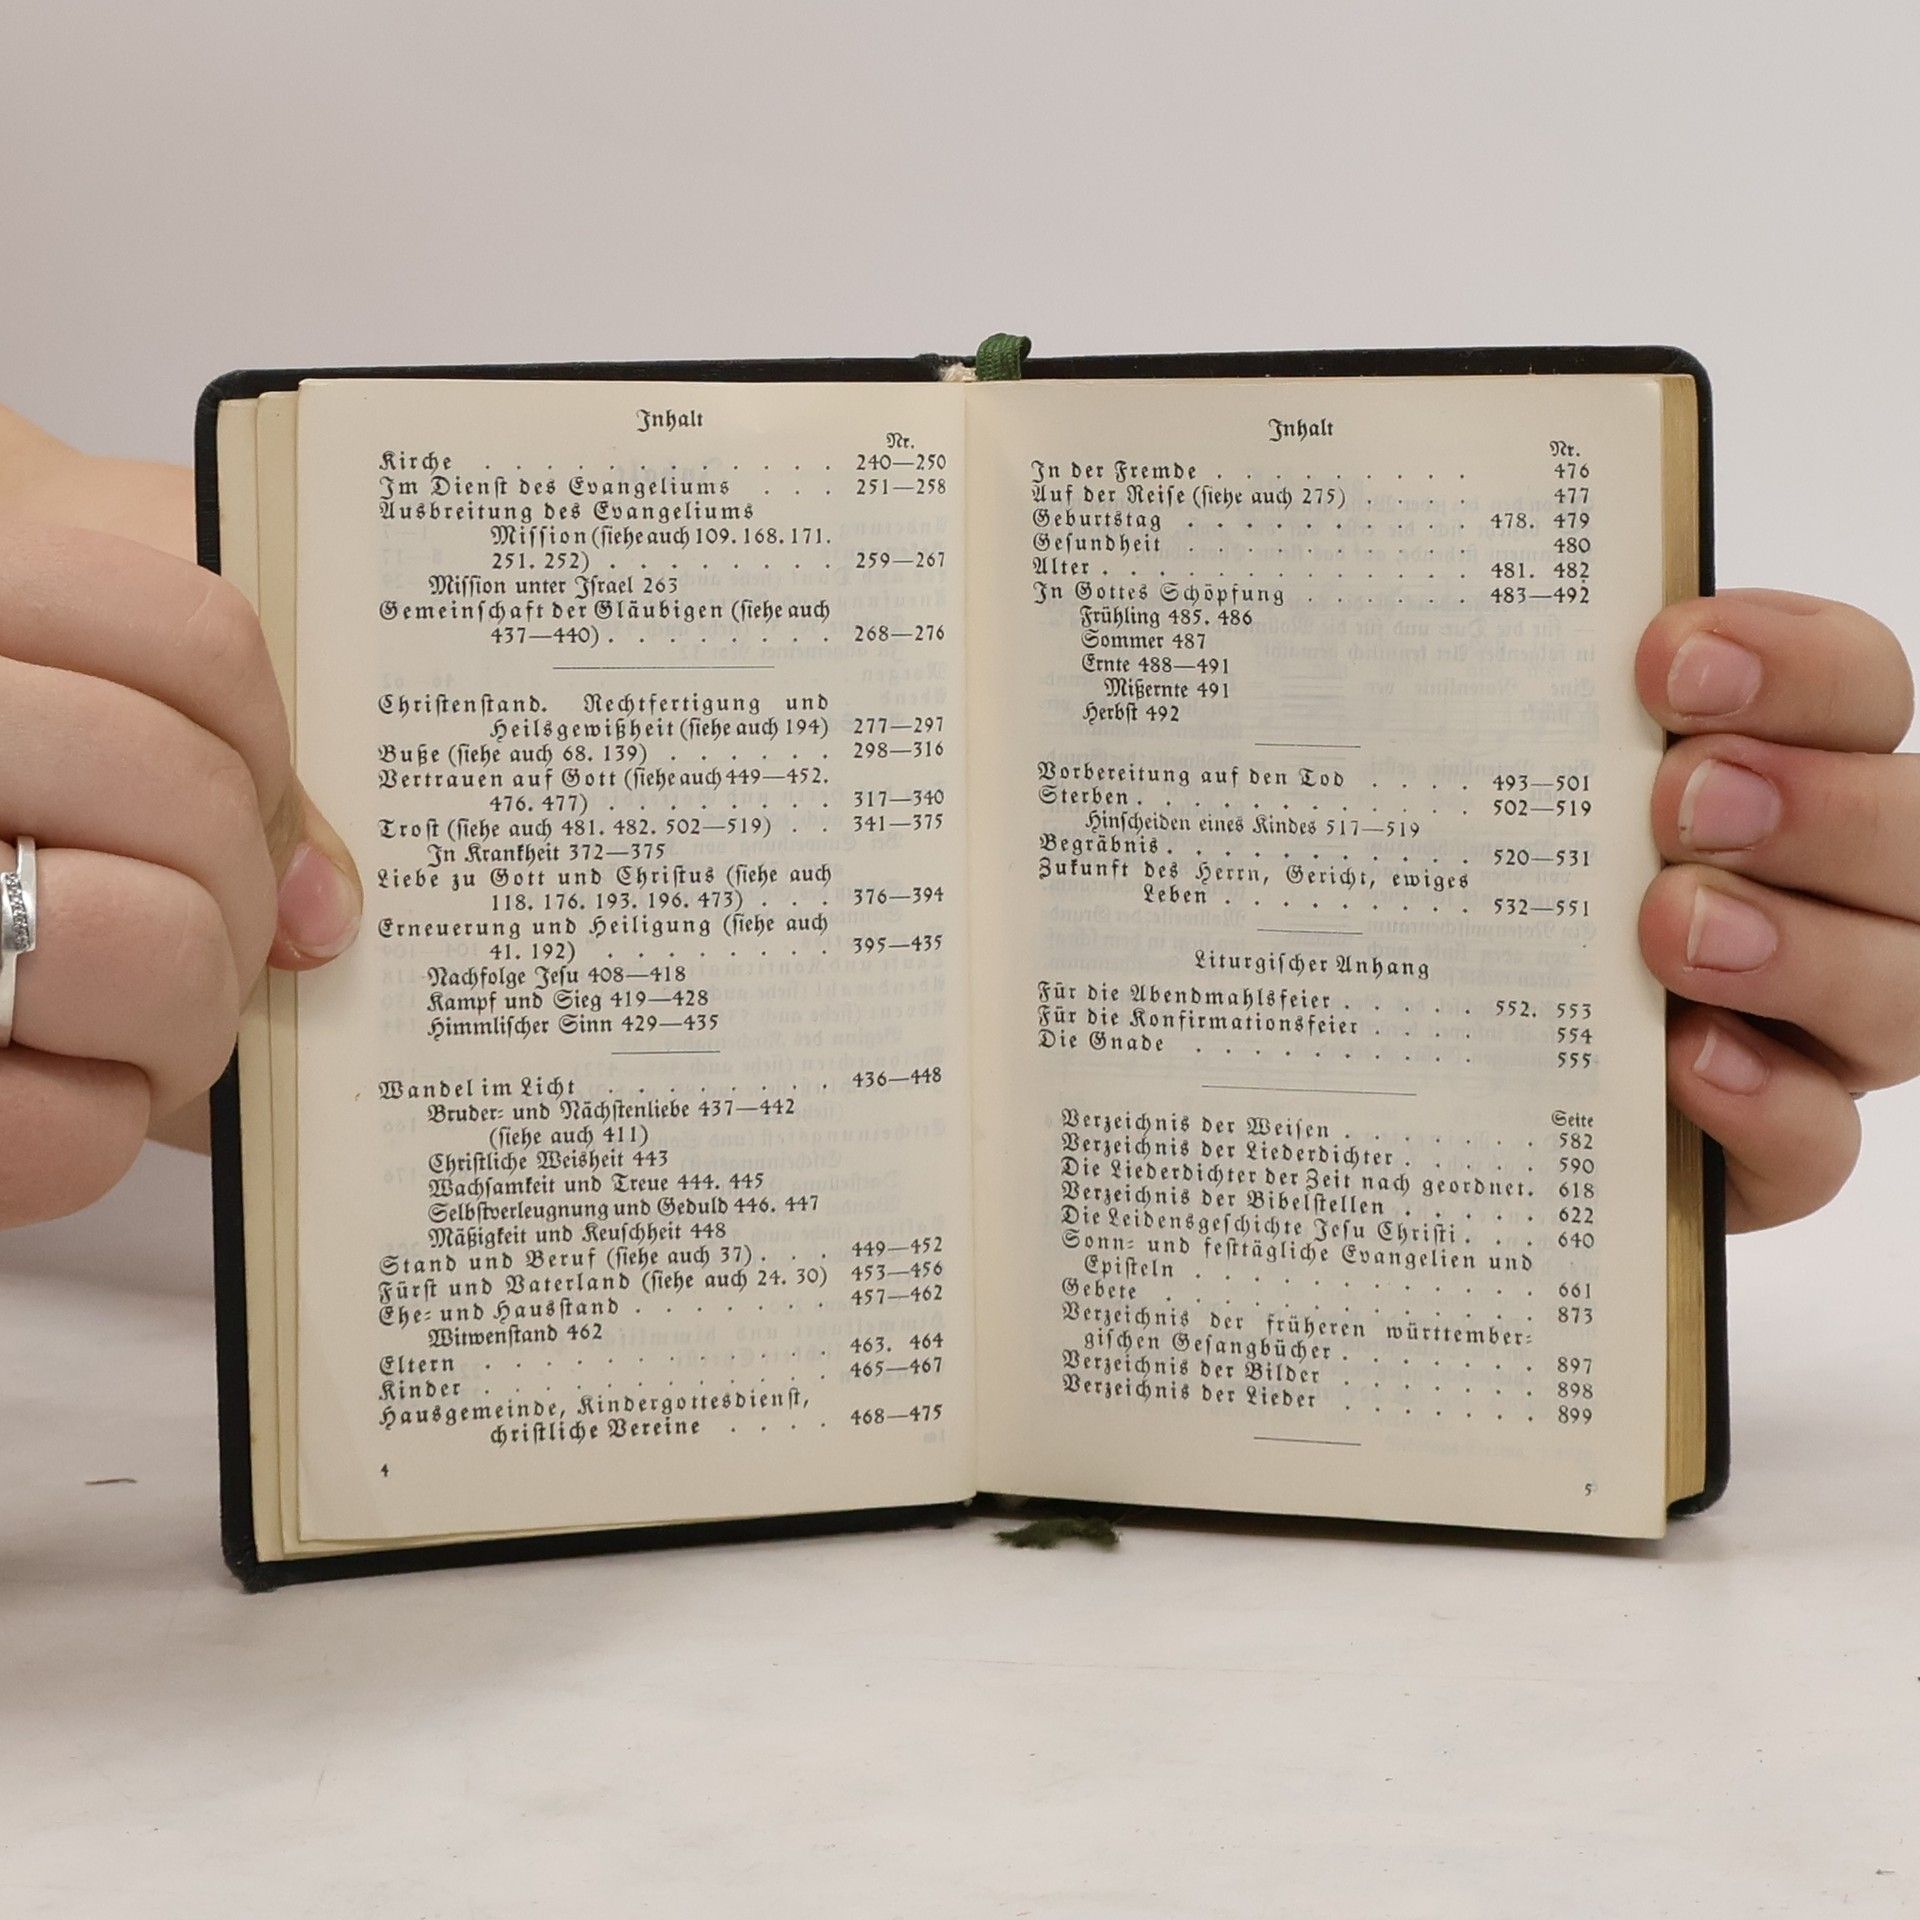 Inhalt
Nr.
Kirche . . . . . . . . . . . . 240—250
Im Dienſt des Evangeliums . . . 251—258
Ausbreitung des Evangeliums
Miſſion (ſiehe auch 109. 168. 171.
251. 252) . . . . . . . . 259—267
Miſſion unter Iſrael 263
Gemeinſchaft der Gläubigen (ſiehe auch
437—440) . . . . . . . . 268—276
Chriſtenſtand. Rechtfertigung und
Heilsgewißheit (ſiehe auch 194) 277—297
Buße (ſiehe auch 68. 139) . . . . . . 298—316
Vertrauen auf Gott (ſiehe auch 449—452.
476. 477) . . . . . . . . 317—340
Troſt (ſiehe auch 481. 482. 502—519) . . 341—375
In Krankheit 372—375
Liebe zu Gott und Chriſtus (ſiehe auch
118. 176. 193. 196. 473) . . . 376—394
Erneuerung und Heiligung (ſiehe auch
41. 192) . . . . . . . . 395—435
Nachfolge Jeſu 408—418
Kampf und Sieg 419—428
Himmliſcher Sinn 429—435
Wandel im Licht . . . . . . . . 436—448
Bruder- und Nächſtenliebe 437—442
(ſiehe auch 411)
Chriſtliche Weisheit 443
Wachſamkeit und Treue 444. 445
Selbſtverleugnung und Geduld 446. 447
Mäßigkeit und Keuſchheit 448
Stand und Beruf (ſiehe auch 37) . . . 449—452
Fürſt und Vaterland (ſiehe auch 24. 30) 453—456
Ehe- und Hausſtand . . . . . . . 457—462
Witwenſtand 462
Eltern . . . . . . . . . . . . 463. 464
Kinder . . . . . . . . . . . . 465—467
Hausgemeinde, Kindergottesdienſt,
chriſtliche Vereine . . . . 468—475
4
Inhalt
Nr.
In der Fremde . . . . . . . . . 476
Auf der Reiſe (ſiehe auch 275) . . . . 477
Geburtstag . . . . . . . . . . 478. 479
Geſundheit . . . . . . . . . . 480
Alter . . . . . . . . . . . . . 481. 482
In Gottes Schöpfung . . . . . . 483—492
Frühling 485. 486
Sommer 487
Ernte 488—491
Mißernte 491
Herbſt 492
Vorbereitung auf den Tod . . . . 493—501
Sterben . . . . . . . . . . . . 502—519
Hinſcheiden eines Kindes 517—519
Begräbnis . . . . . . . . . . . 520—531
Zukunft des Herrn, Gericht, ewiges
Leben . . . . . . . . . 532—551
Liturgiſcher Anhang
Für die Abendmahlsfeier . . . . . 552. 553
Für die Konfirmationsfeier . . . . 554
Die Gnade . . . . . . . . . . 555
Seite
Verzeichnis der Weiſen . . . . . . . 582
Verzeichnis der Liederdichter . . . . . 590
Die Liederdichter der Zeit nach geordnet . 618
Verzeichnis der Bibelſtellen . . . . . 622
Die Leidensgeſchichte Jeſu Chriſti . . . 640
Sonn- und feſttägliche Evangelien und
Epiſteln . . . . . . . . . . . 661
Gebete . . . . . . . . . . . . 873
Verzeichnis der früheren württember-
giſchen Geſangbücher . . . . . . . 897
Verzeichnis der Bilder . . . . . . . 898
Verzeichnis der Lieder . . . . . . . 899
5